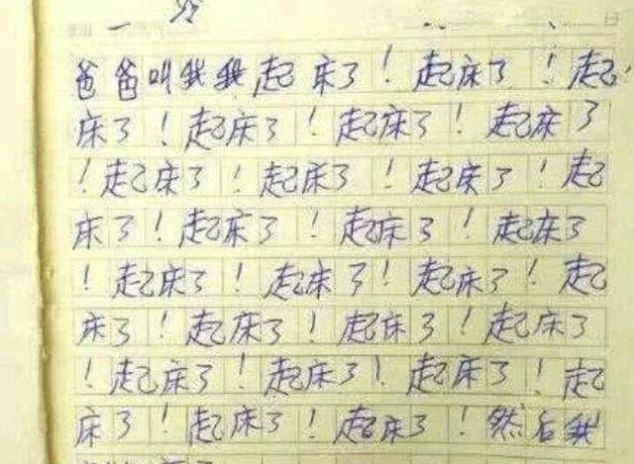 爸爸叫我我起床了!起床了!起
床了!起床了!起床了!起床了
!起床了!起床了!起床了!起
床了!起床了!起床了!起床了
!起床了!起床了!起床了!起
床了!起床了!起床了!起床了
!起床了!起床了!起床了!起
床了!起床了!起床了!然后我